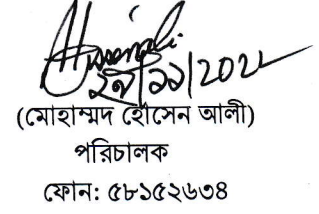 ২৭/১১/2022
(মোহাম্মদ হোসেন আলী)
পরিচালক
ফোন: ৫৮১৫২৬৩৪